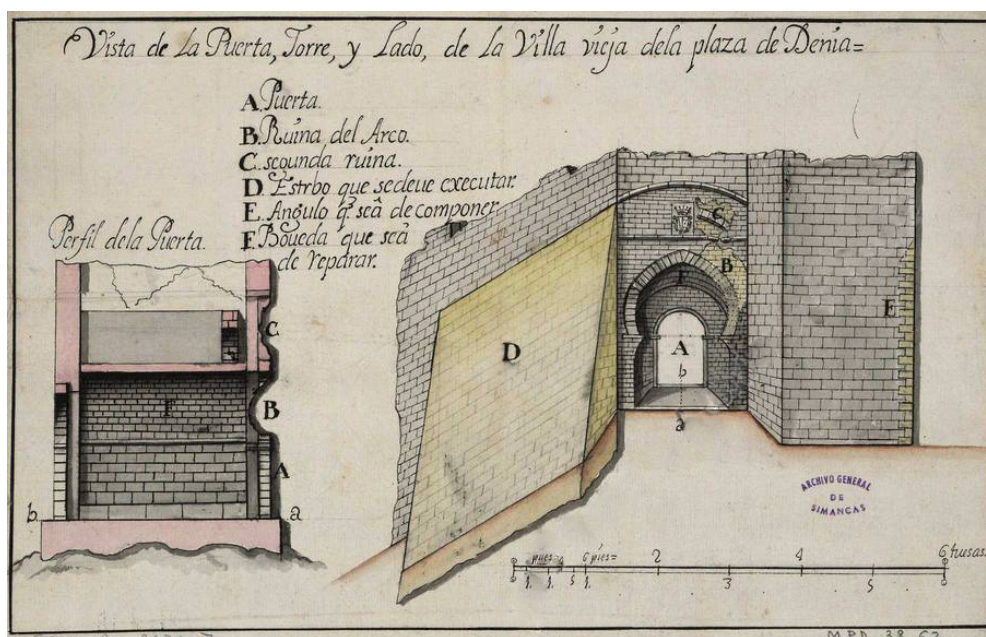 Vista de La Puerta, Torre, y Lado, de La Villa vieja dela plaza de Denia=
A. Puerta.
B. Ruina del Arco.
C. segunda ruina.
D. Estrbo que sedeue executar.
E. Angulo q̂ seâ de componer
F. Boueda que seâ
de reparar.
Perfil dela Puerta.
C
F
B
A
b
a
D
C
B
F
A
b
a
E
ARCHIVO GENERAL
DE
SIMANCAS
pies=
6 pies=
2
4
6 tuesas.
1.
1.
5
1.
3
5